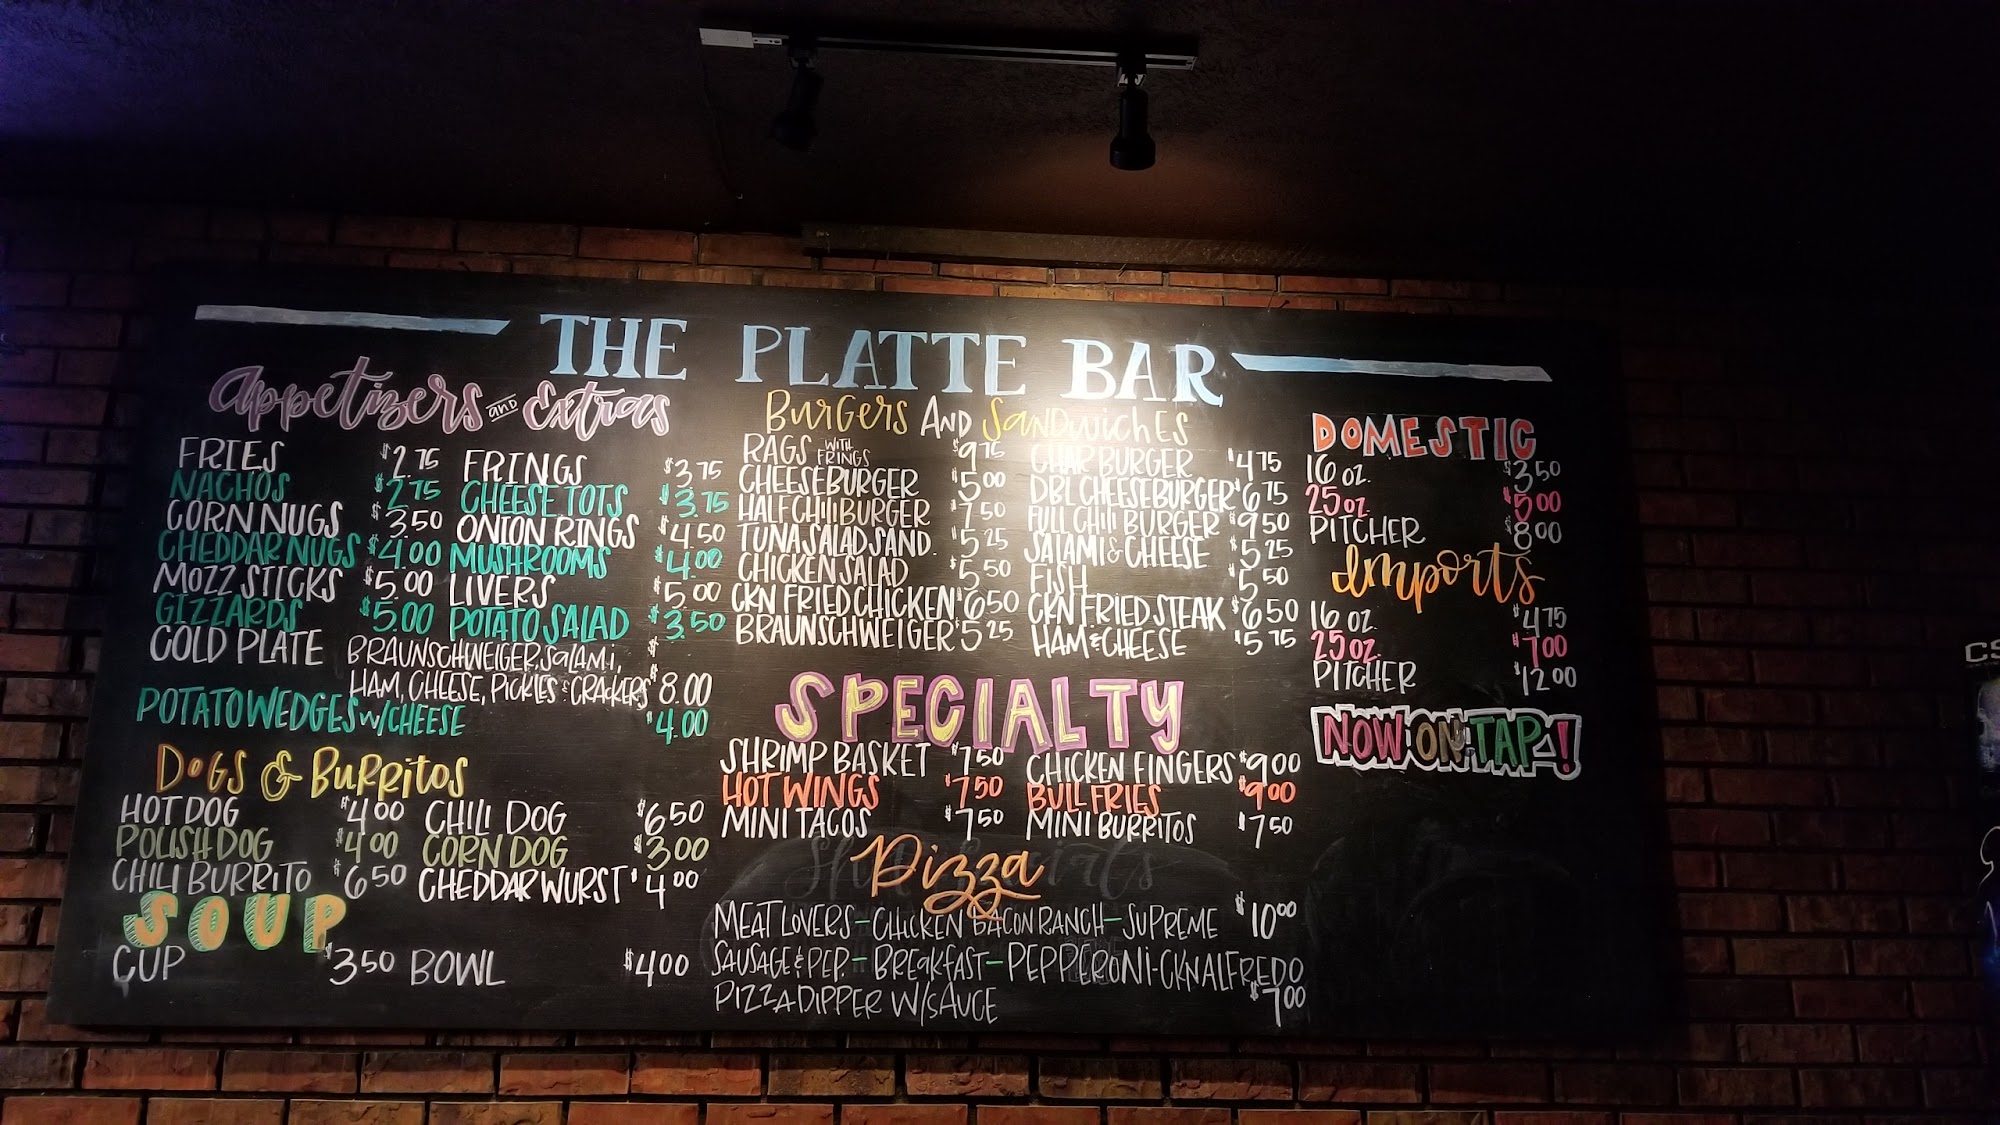 THE PLATTE BAR
Appetizers AND Extras
FRIES $2.75 FRINGS $3.75
NACHOS $2.75 CHEESE TOTS $3.75
CORN NUGS $3.50 ONION RINGS $4.50
CHEDDAR NUGS $4.00 MUSHROOMS $4.00
MOZZ STICKS $5.00 LIVERS $5.00
GIZZARDS $5.00 POTATO SALAD $3.50
COLD PLATE BRAUNSCHWEIGER, SALAMI,
HAM, CHEESE, PICKLES & CRACKERS $8.00
POTATO WEDGES W/CHEESE $4.00
DOGS & BURRITOS
HOT DOG $4.00 CHILI DOG $6.50
POLISH DOG $4.00 CORN DOG $3.00
CHILI BURRITO $6.50 CHEDDARWURST $4.00
SOUP
CUP $3.50 BOWL $4.00
BURGERS AND SANDWICHES
RAGS WITH FRINGS $9.75 CHAR BURGER $4.75
CHEESEBURGER $5.00 DBL CHEESEBURGER $6.75
HALF CHILI BURGER $7.50 FULL CHILI BURGER $9.50
TUNA SALAD SAND. $5.25 SALAMI & CHEESE $5.25
CHICKEN SALAD $5.50 FISH $5.50
CKN FRIED CHICKEN $6.50 CKN FRIED STEAK $6.50
BRAUNSCHWEIGER $5.25 HAM & CHEESE $5.75
SPECIALTY
SHRIMP BASKET $7.50 CHICKEN FINGERS $9.00
HOT WINGS $7.50 BULL FRIES $9.00
MINI TACOS $7.50 MINI BURRITOS $7.50
Pizza
MEAT LOVERS - CHICKEN BACON RANCH - SUPREME $10.00
SAUSAGE & PEP. - BREAKFAST - PEPPERONI - CKN ALFREDO
PIZZA DIPPER W/SAUCE $7.00
DOMESTIC
16 OZ. $3.50
25 OZ. $5.00
PITCHER $8.00
Imports
16 OZ. $4.75
25 OZ. $7.00
PITCHER $12.00
NOW ON TAP!
CS